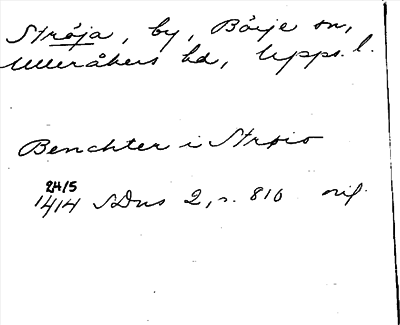 Ströja, by, Börje sn,
Ulleråkers hd, Upps. l.
Benchter i Strøio
24/5
1414 SDns 2, s. 810 orig.